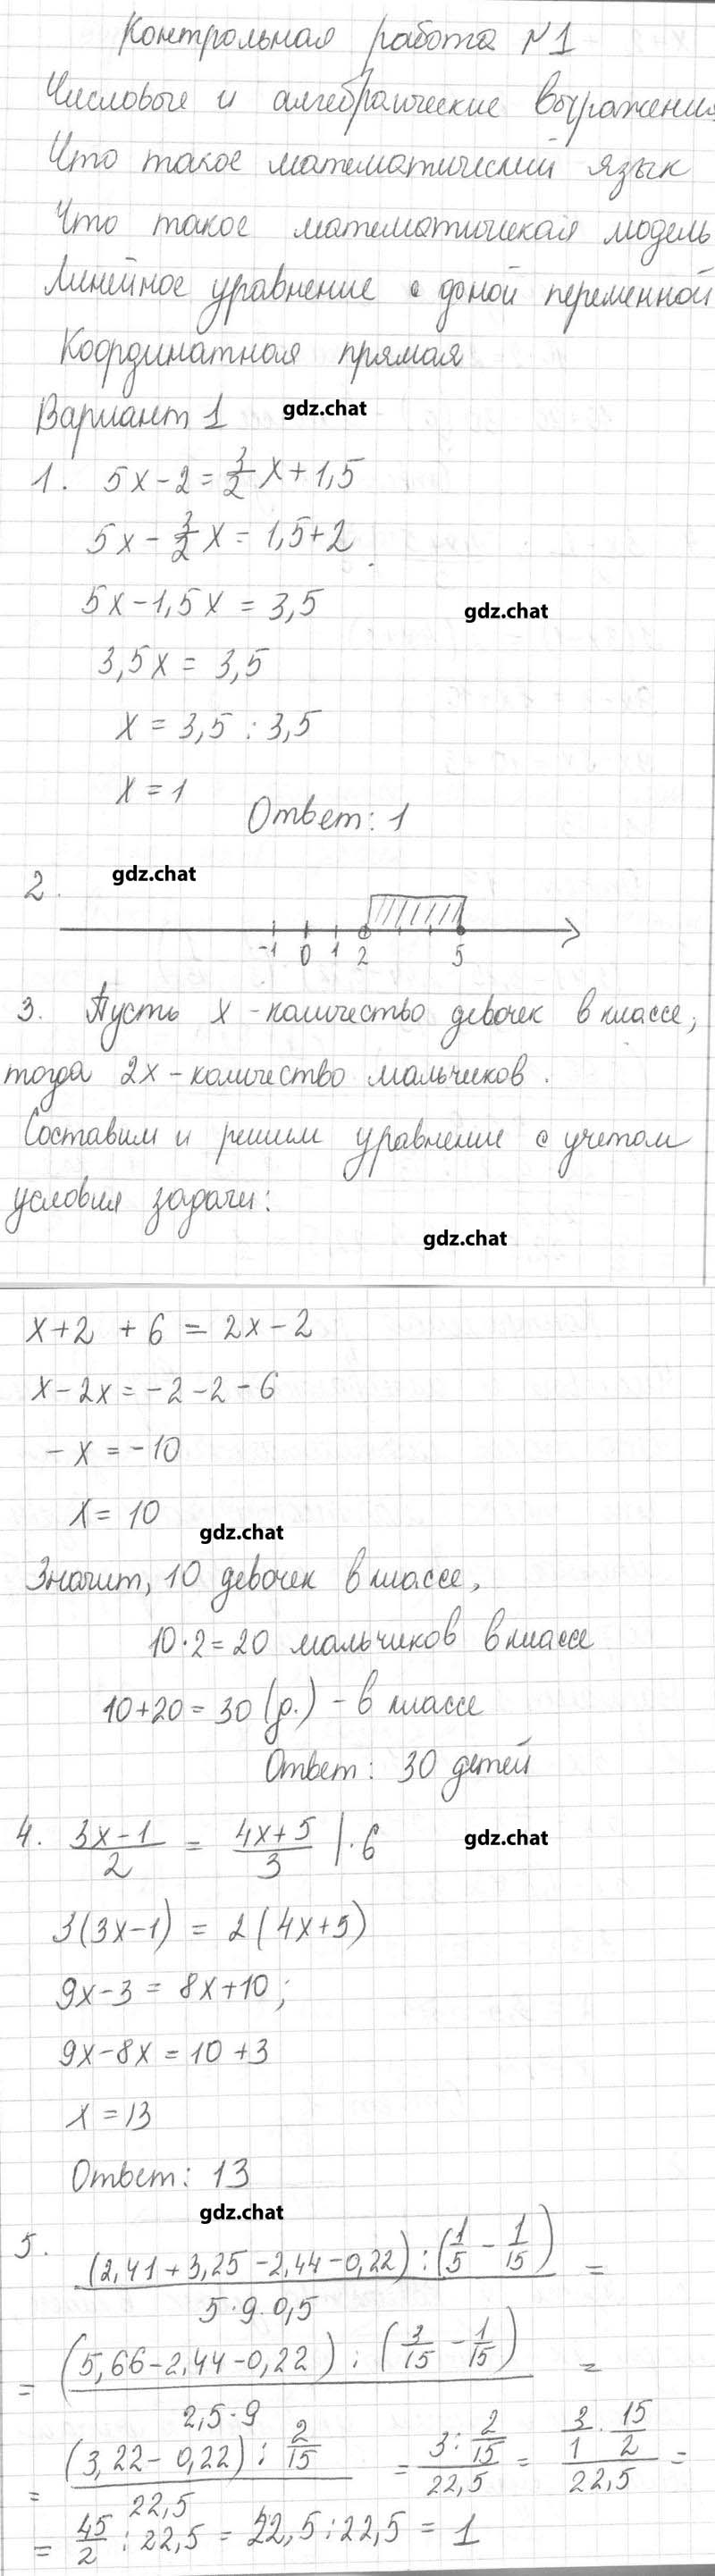 Контрольная работа №1
Числовые и алгебраические выражения
Что такое математический язык
Что такое математическая модель
Линейное уравнение с доной переменной
Координатная прямая
Вариант 1 gdz.chat
1. 5x-2 = 3/2 x + 1,5
5x - 3/2 x = 1,5+2
5x-1,5x = 3,5 gdz.chat
3,5x = 3,5
x = 3,5 : 3,5
x = 1
Ответ: 1
2. gdz.chat
-1 0 1 2 5
3. Пусть x - количество девочек в классе,
тогда 2x - количество мальчиков.
Составим и решим уравнение с учетом
условия задачи:
gdz.chat
x+2 + 6 = 2x-2
x-2x = -2-2-6
-x = -10
x = 10
gdz.chat
Значит, 10 девочек в классе,
10·2 = 20 мальчиков в классе
10+20 = 30 (д.) - в классе
Ответ: 30 детей
4. (3x-1)/2 = (4x+5)/3 |·6 gdz.chat
3(3x-1) = 2(4x+5)
9x-3 = 8x+10;
9x-8x = 10+3
x = 13
Ответ: 13
gdz.chat
5. (2,41+3,25-2,44-0,22):(1/5 - 1/15) / 5·9·0,5 =
= (5,66-2,44-0,22):(3/15 - 1/15) / 2,5·9 =
= (3,22-0,22): 2/15 / 22,5 = 3: 2/15 / 22,5 = 3/1 · 15/2 / 22,5 =
= 45/2 : 22,5 = 22,5:22,5 = 1